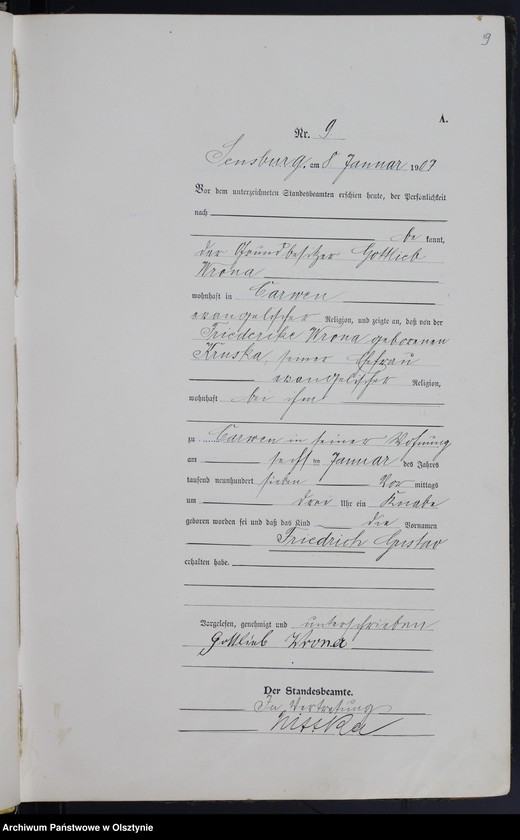 9
A.
Nr. 9
Sensburg, am 8 Januar 1907
Vor dem unterzeichneten Standesbeamten erschien heute, der Persönlichkeit
nach
be kannt,
der Grundbesitzer Gottlieb
Wrona
wohnhaft in Carwen
evangelischer Religion, und zeigte an, daß von der
Friederike Wrona geborenen
Kruska, seiner Ehefrau
evangelischer Religion,
wohnhaft bei ihm
zu Carwen in seiner Wohnung
am sechsten Januar des Jahres
tausend neunhundert sieben Vor mittags
um drei Uhr ein Knabe
geboren worden sei und daß das Kind die Vornamen
Friedrich Gustav
erhalten habe.
Vorgelesen, genehmigt und unterschrieben
Gottlieb Wrona
Der Standesbeamte.
In Vertretung
Archiwum Państwowe w Olsztynie